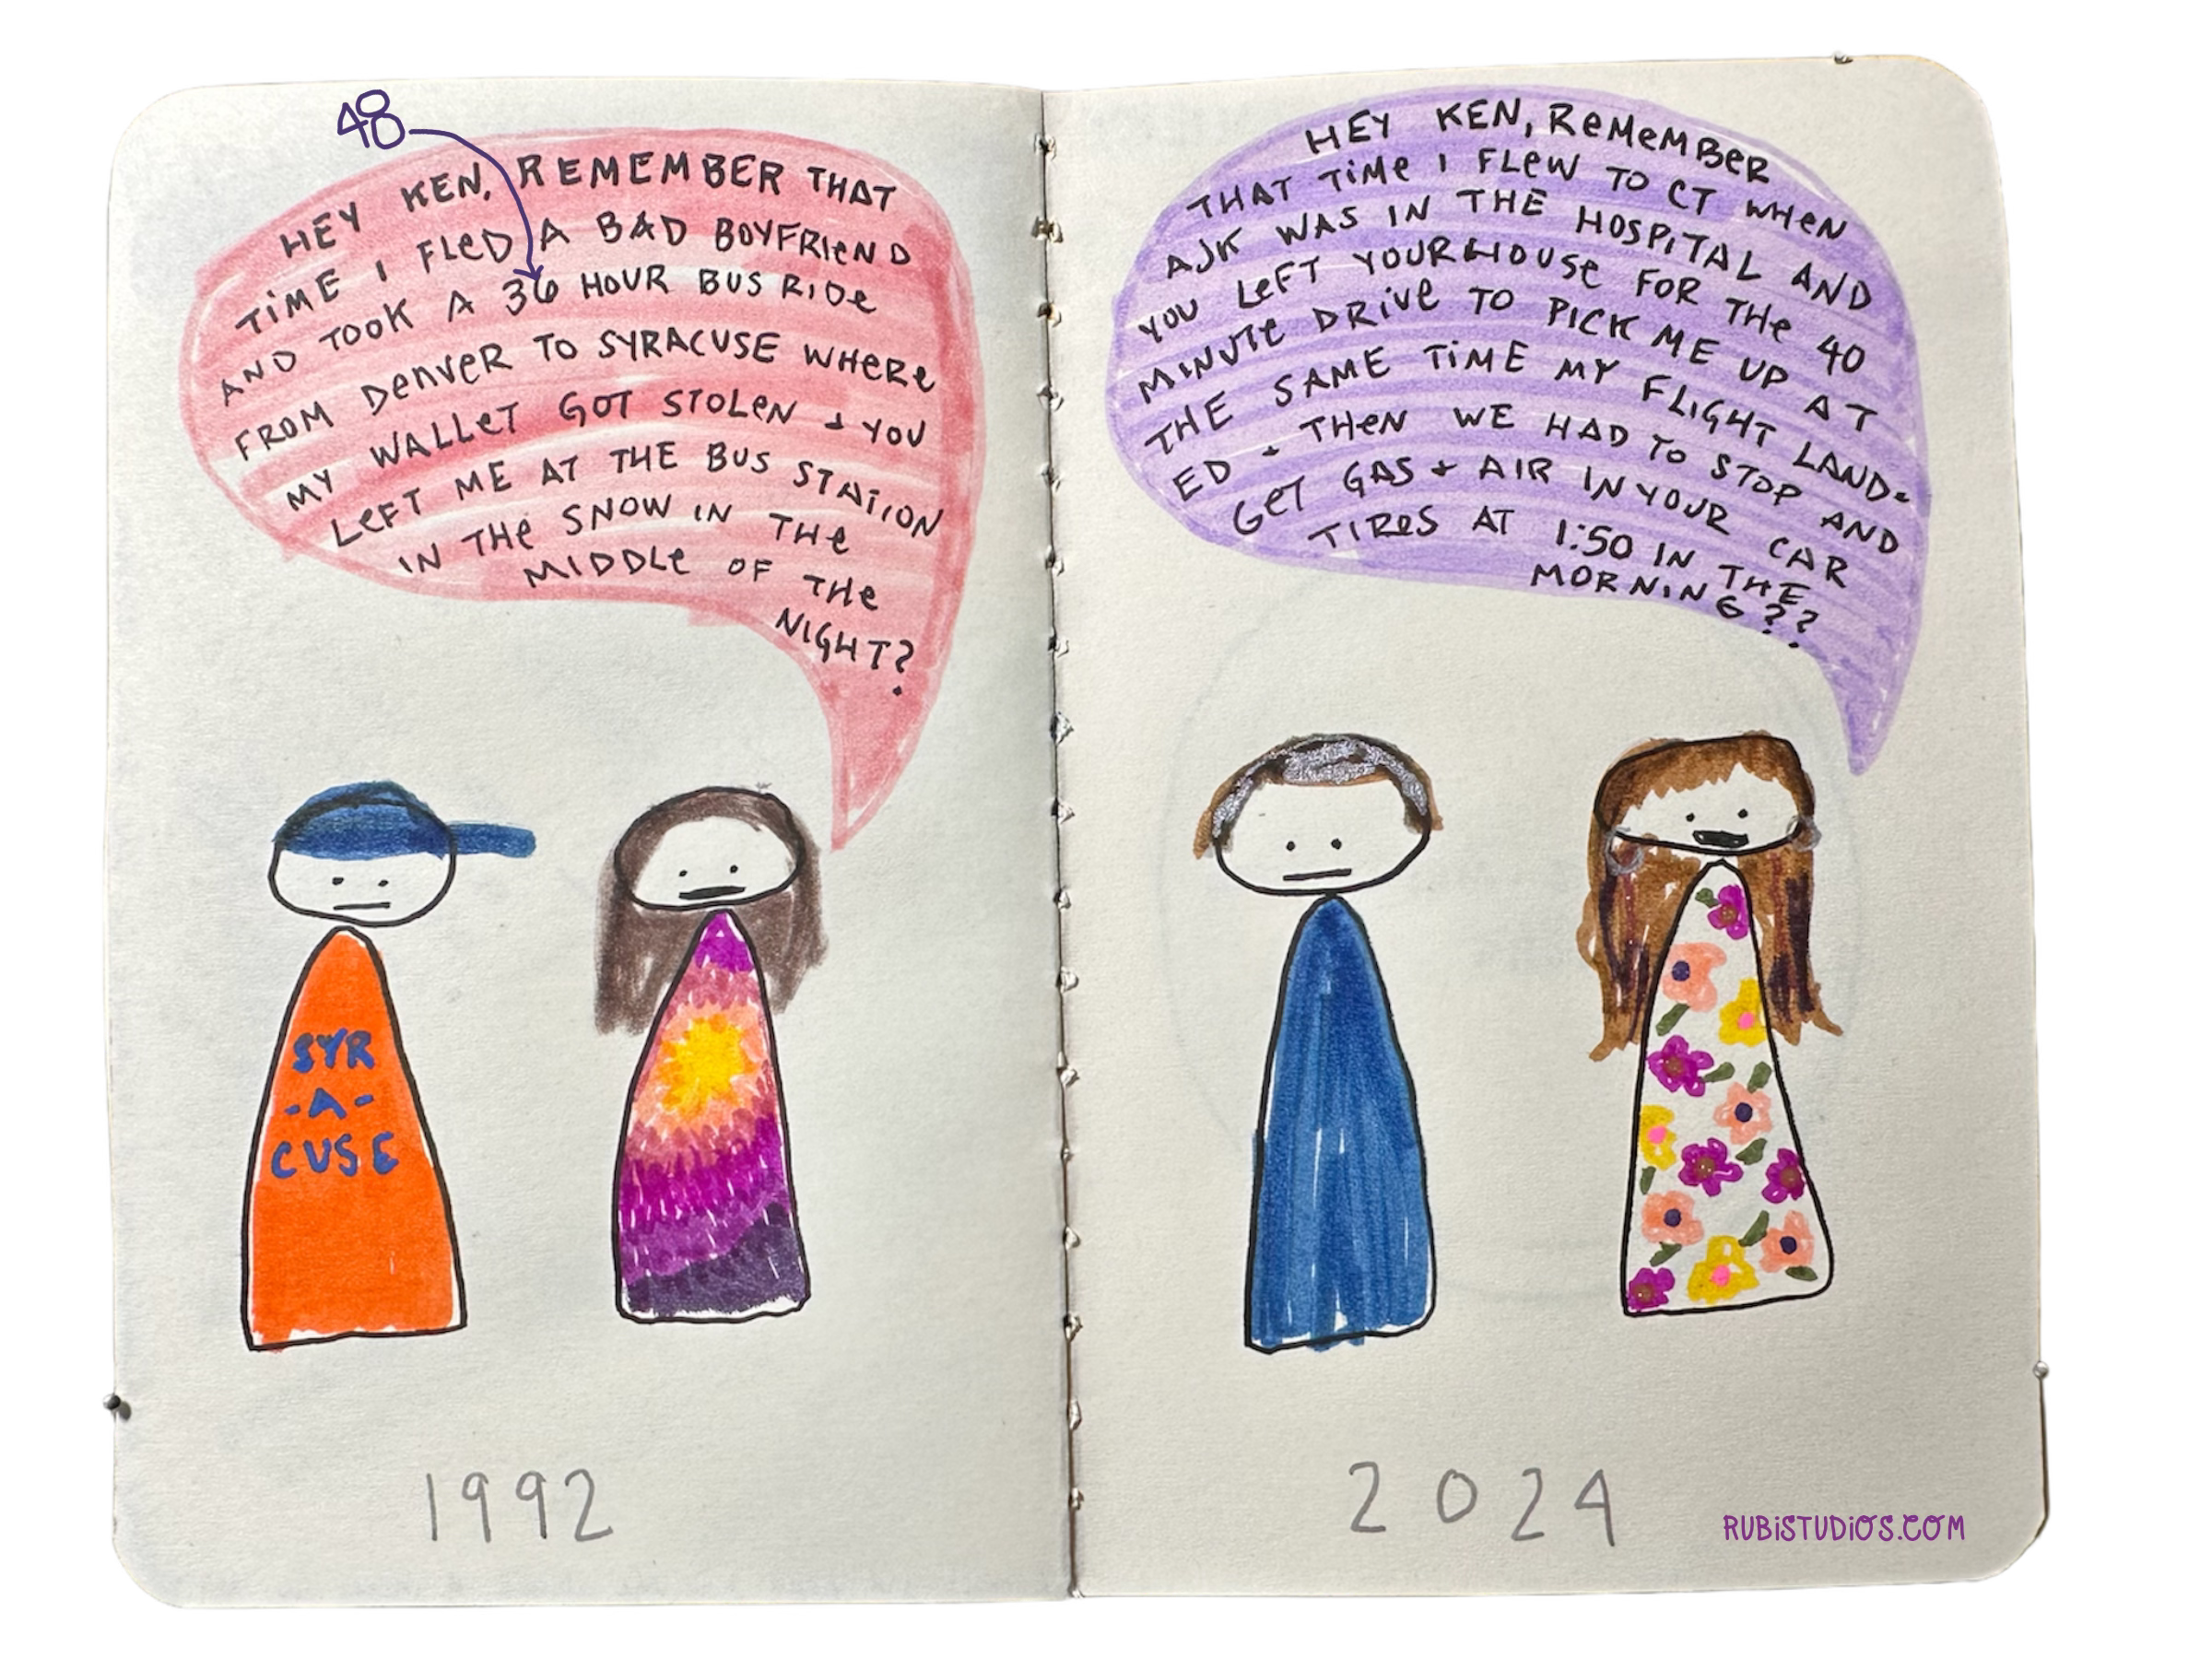 48
HEY KEN, REMEMBER THAT
TIME I FLED A BAD BOYFRIEND
AND TOOK A 36 HOUR BUS RIDE
FROM DENVER TO SYRACUSE WHERE
MY WALLET GOT STOLEN + YOU
LEFT ME AT THE BUS STATION
IN THE SNOW IN THE
MIDDLE OF THE
NIGHT?
SYR
-A-
CUSE
1992
HEY KEN, REMEMBER
THAT TIME I FLEW TO CT WHEN
AJK WAS IN THE HOSPITAL AND
YOU LEFT YOUR HOUSE FOR THE 40
MINUTE DRIVE TO PICK ME UP AT
THE SAME TIME MY FLIGHT LAND-
ED + THEN WE HAD TO STOP AND
GET GAS + AIR IN YOUR CAR
TIRES AT 1:50 IN THE
MORNING??
2024
RUBISTUDIOS.COM